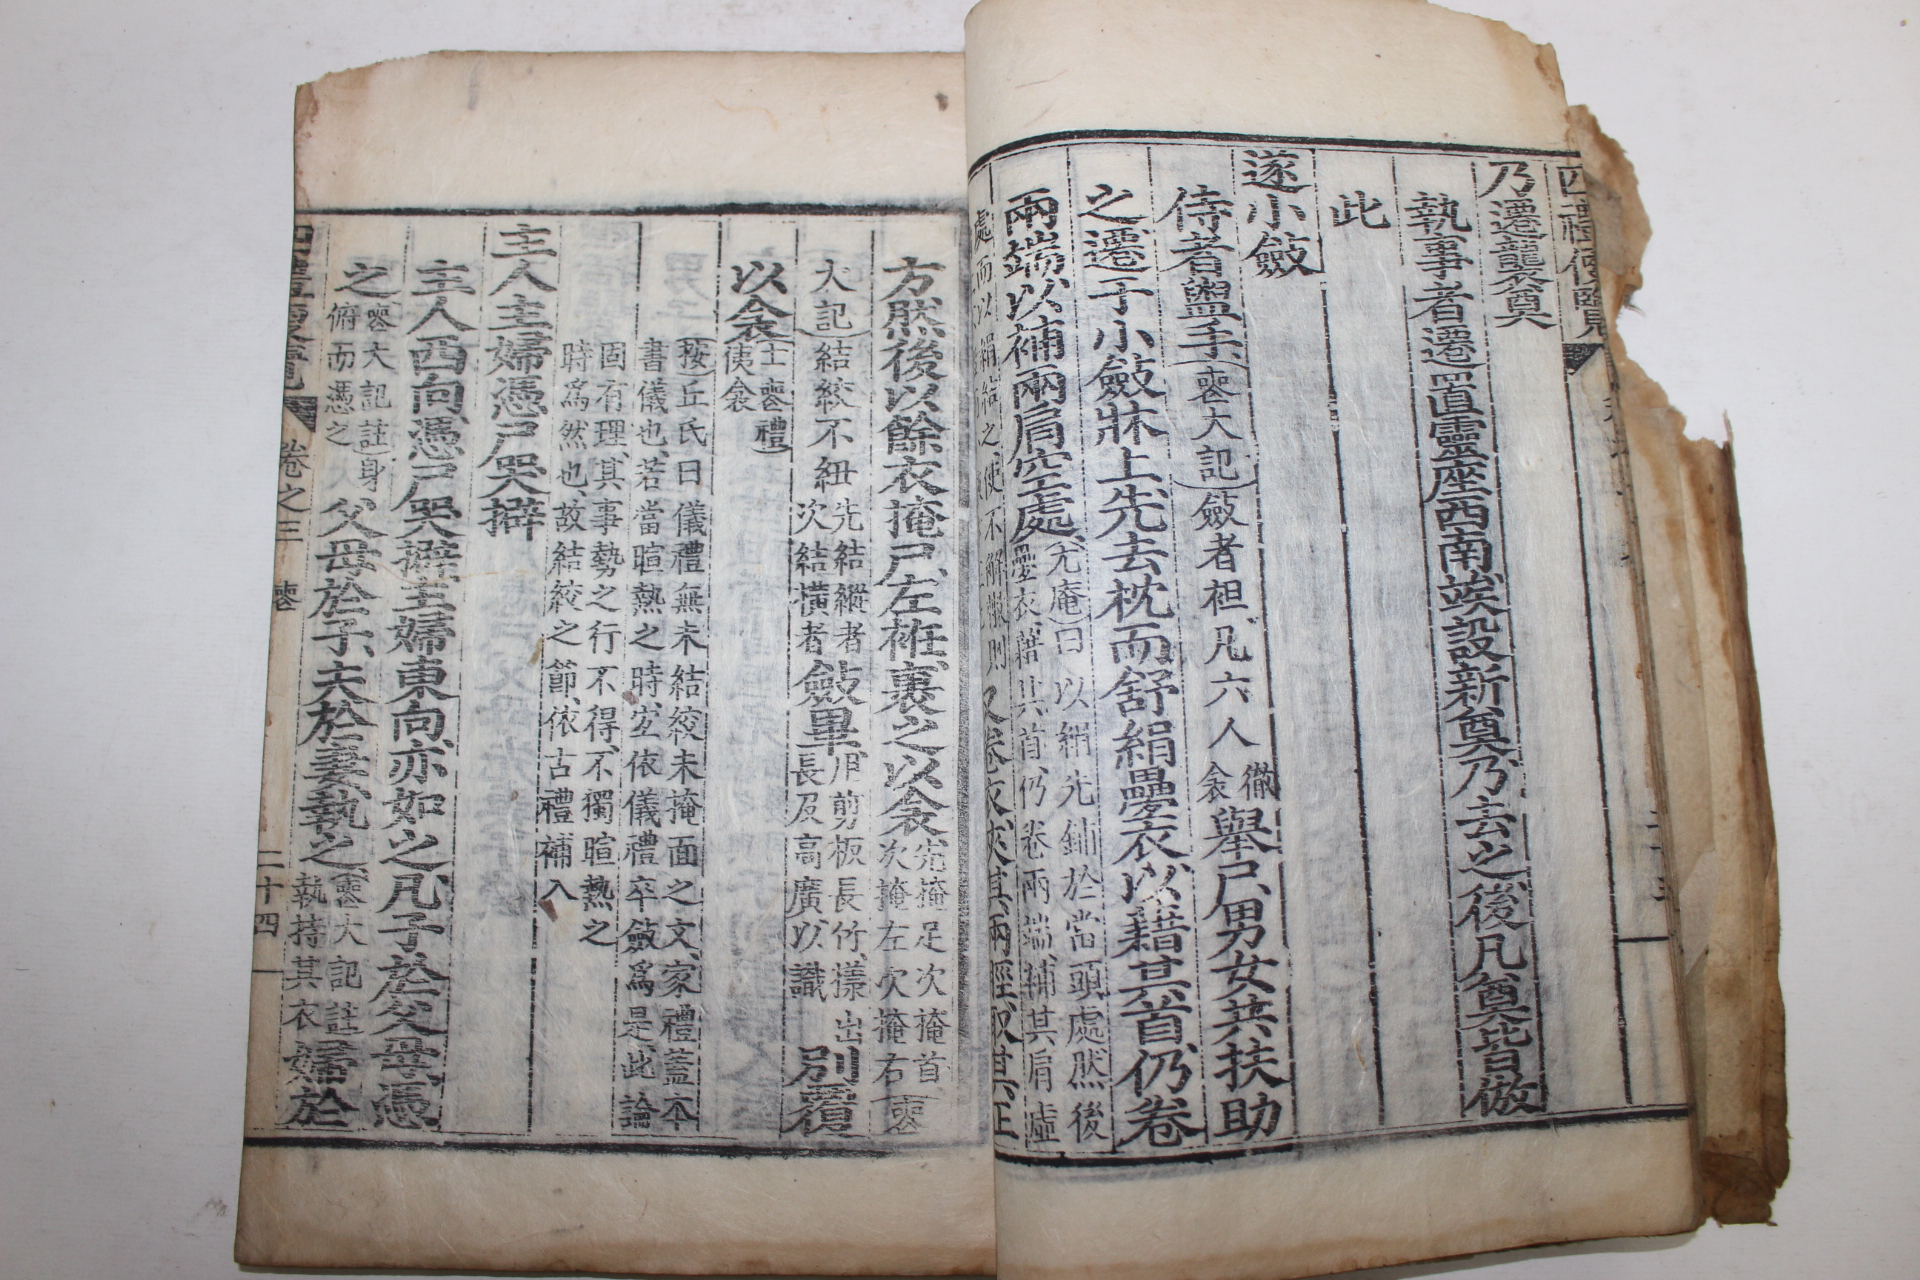 四禮便覽
乃遷襲奠
執事者遷置靈座西南竢設新奠乃去之後凡奠皆倣
此
遂小斂
侍者盥手(喪大記)斂者袒凡六人徹衾擧尸男女共扶助
之遷于小斂牀上先去枕而舒絹疊衣以藉其首仍卷
兩端以補兩肩空處(尤庵)曰以絹先鋪於當頭處然後
疊衣藉其首仍卷兩端補其肩虛
處而以絹結之使不解散則又卷衣夾其兩脛取其正
方然後以餘衣掩尸左衽裹之以衾先掩足次掩首
次掩左次掩右(喪
大記)結絞不紐先結縱者
次結橫者斂畢用剪板長竹㨾出
長及高廣以識別覆
以衾(士喪禮)
侇衾
(按)丘氏曰儀禮無未結絞未掩面之文家禮蓋本
書儀也若當暄熱之時宜依儀禮卒斂爲是此論
固有理其事勢之行不得不獨暄熱之
時爲然也故結絞之節依古禮補入
主人主婦憑尸哭擗
主人西向憑尸哭擗主婦東向亦如之凡子於父母憑
之(喪大記註)身
俯而憑之父母於子夫於妻執之(喪大記註)
執持其衣婦於
四禮便覽 卷之三 喪 二十四